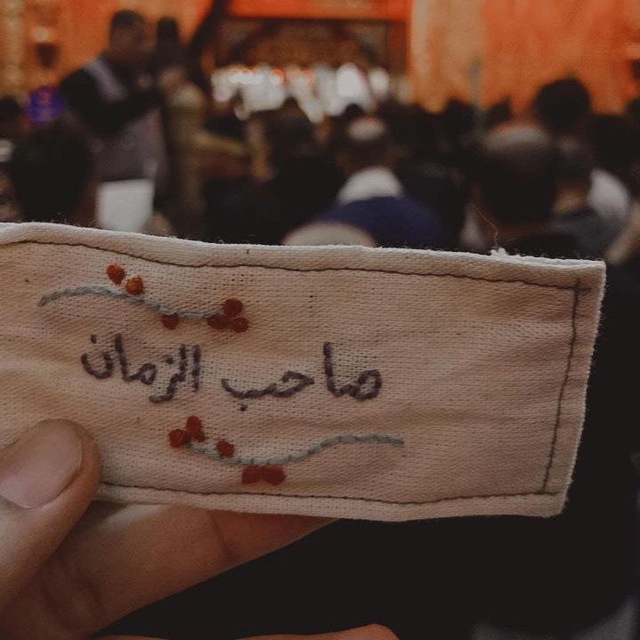 صاحب الزمان